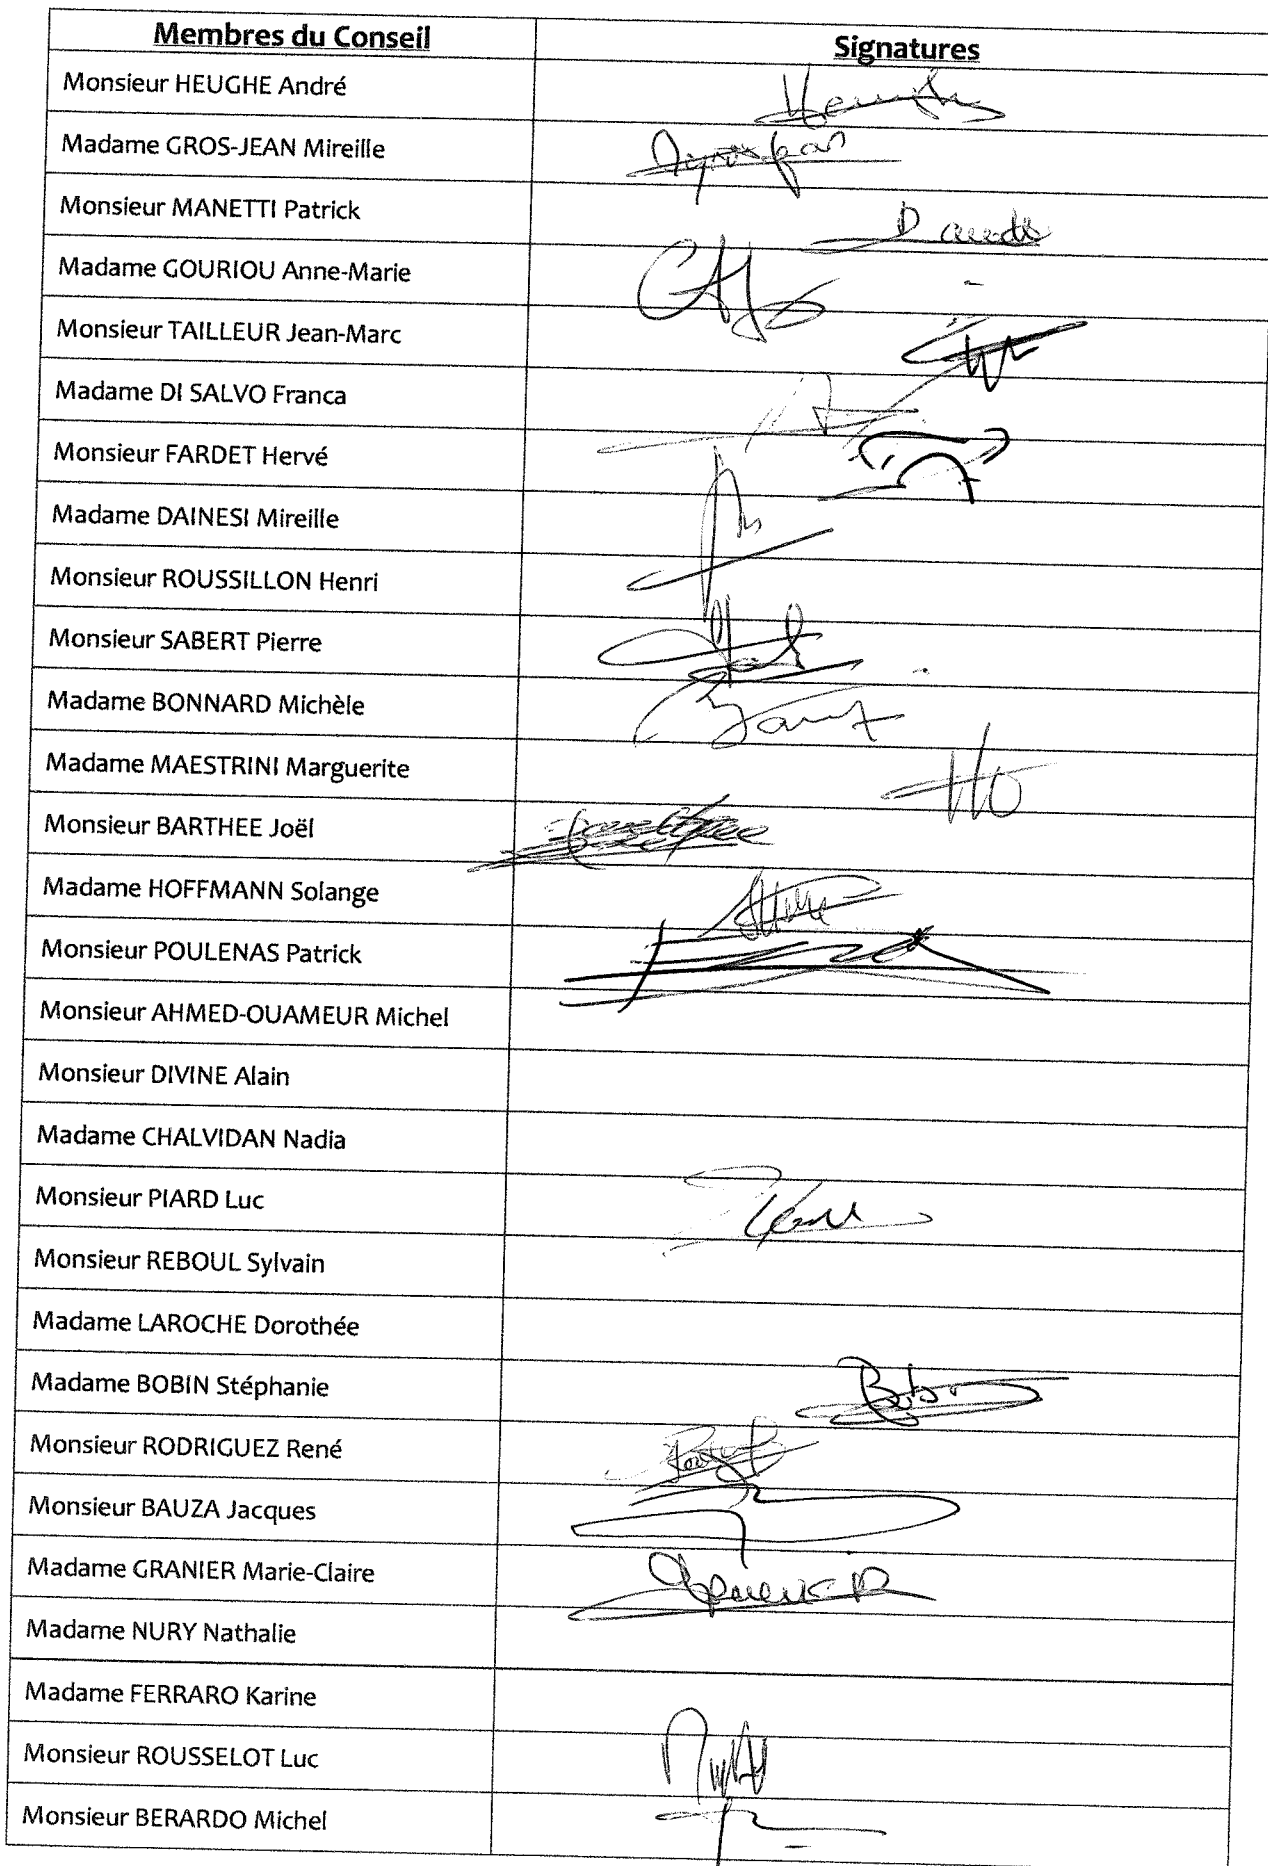 Membres du Conseil
Signatures
Monsieur HEUGHE André
Madame GROS-JEAN Mireille
Monsieur MANETTI Patrick
Madame GOURIOU Anne-Marie
Monsieur TAILLEUR Jean-Marc
Madame DI SALVO Franca
Monsieur FARDET Hervé
Madame DAINESI Mireille
Monsieur ROUSSILLON Henri
Monsieur SABERT Pierre
Madame BONNARD Michèle
Madame MAESTRINI Marguerite
Monsieur BARTHEE Joël
Madame HOFFMANN Solange
Monsieur POULENAS Patrick
Monsieur AHMED-OUAMEUR Michel
Monsieur DIVINE Alain
Madame CHALVIDAN Nadia
Monsieur PIARD Luc
Monsieur REBOUL Sylvain
Madame LAROCHE Dorothée
Madame BOBIN Stéphanie
Monsieur RODRIGUEZ René
Monsieur BAUZA Jacques
Madame GRANIER Marie-Claire
Madame NURY Nathalie
Madame FERRARO Karine
Monsieur ROUSSELOT Luc
Monsieur BERARDO Michel